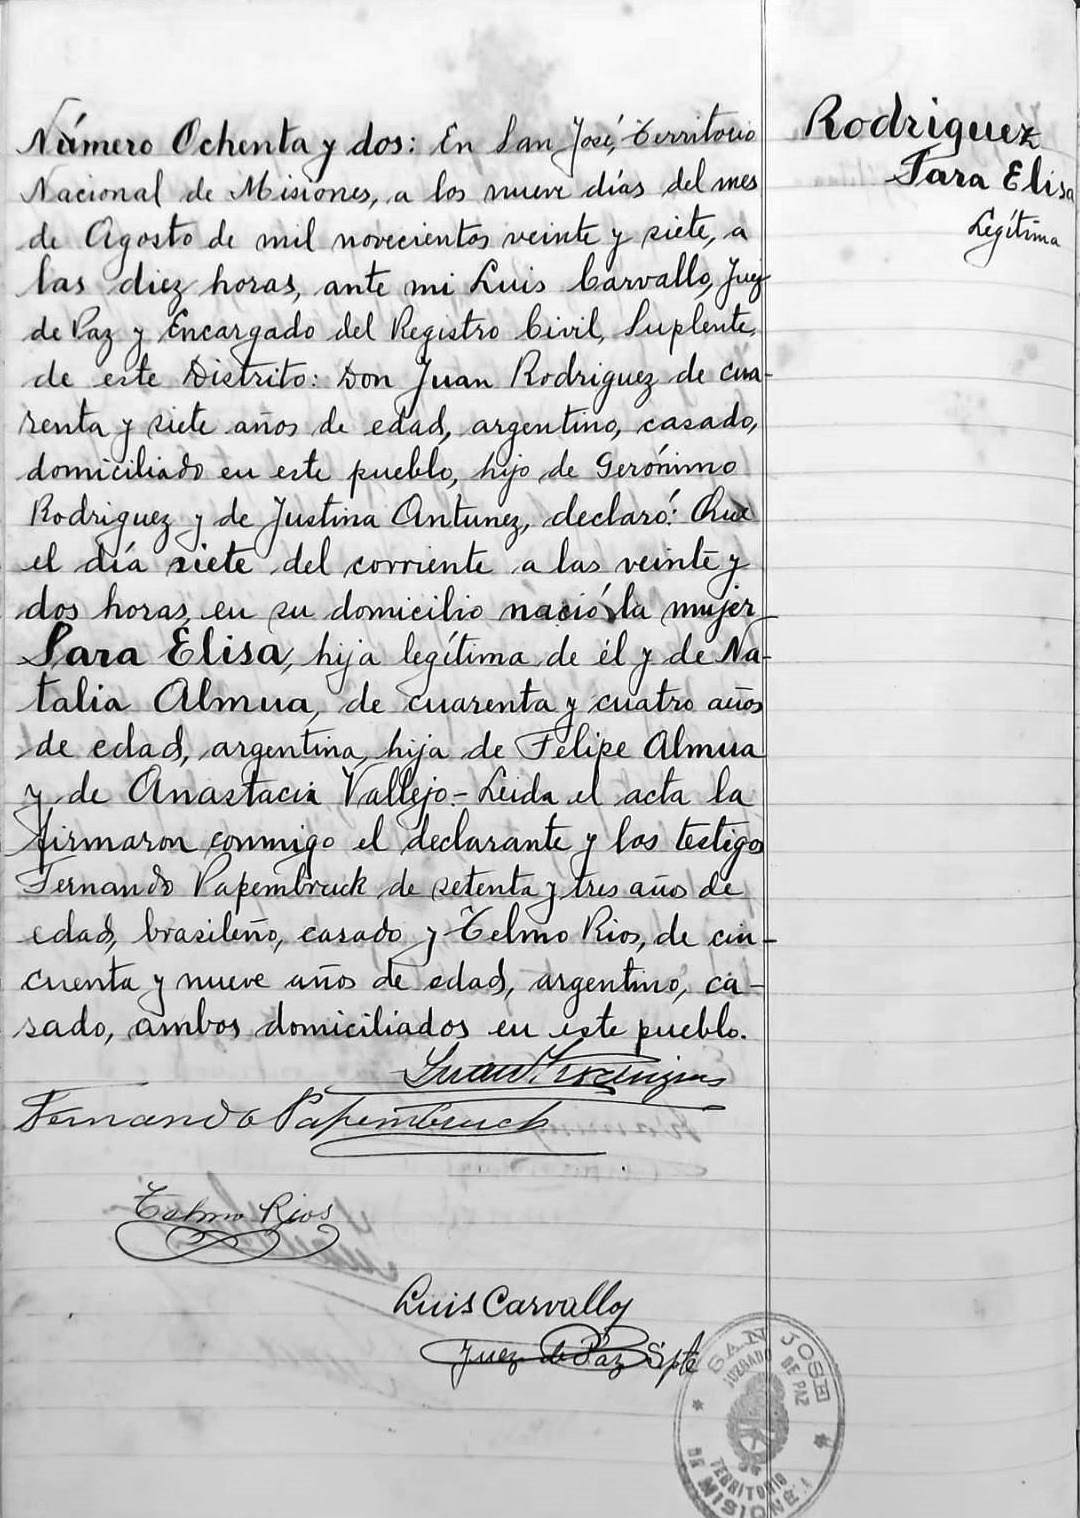 Número Ochenta y dos: En San José, Territorio
Nacional de Misiones, a los nueve días del mes
de Agosto de mil novecientos veinte y siete, a
las diez horas, ante mi Luis Carvallo, Juez
de Paz y Encargado del Registro Civil, Suplente,
de este Distrito: Don Juan Rodriguez de cua-
renta y siete años de edad, argentino, casado,
domiciliado en este pueblo, hijo de Gerónimo
Rodriguez y de Justina Antunez, declaró: Que
el día siete del corriente a las veinte y
dos horas, en su domicilio nació la mujer
Sara Elisa, hija legítima de él y de Na-
talia Almua, de cuarenta y cuatro años
de edad, argentina, hija de Felipe Almua
y de Anastacia Vallejo.- Leida el acta la
firmaron conmigo el declarante y los testigo
Fernando Papembruck de setenta y tres año de
edad, brasileño, casado y Telmo Rios, de cin-
cuenta y nueve años de edad, argentino, ca-
sado, ambos domiciliados en este pueblo.
Juan Rodriguez
Fernando Papembruck
Telmo Rios
Luis Carvallo
Juez de Paz Splte
Rodriguez
Sara Elisa
Legítima
SAN JOSE
JUZGADO DE PAZ
TERRITORIO
DE MISIONES